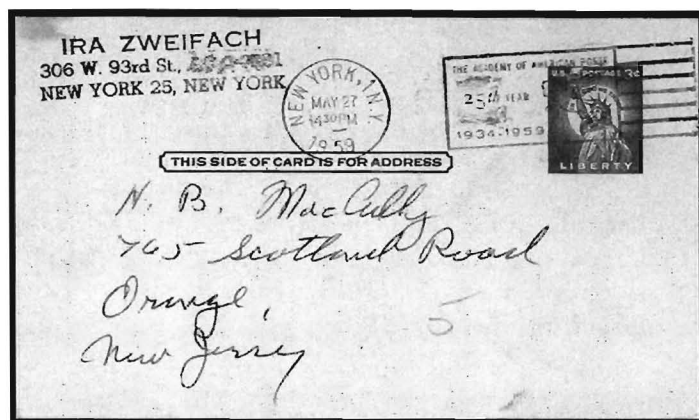 IRA ZWEIFACH
306 W. 93rd St.,
NEW YORK 25, NEW YORK
NEW YORK, N.Y.
MAY 27
4 30 PM
1959
THE ACADEMY OF AMERICAN POETS
25th YEAR
1934-1959
U.S. POSTAGE 3¢
LIBERTY
THIS SIDE OF CARD IS FOR ADDRESS
N. B. MacCully
765 Scotland Road
Orange,
New Jersey
5